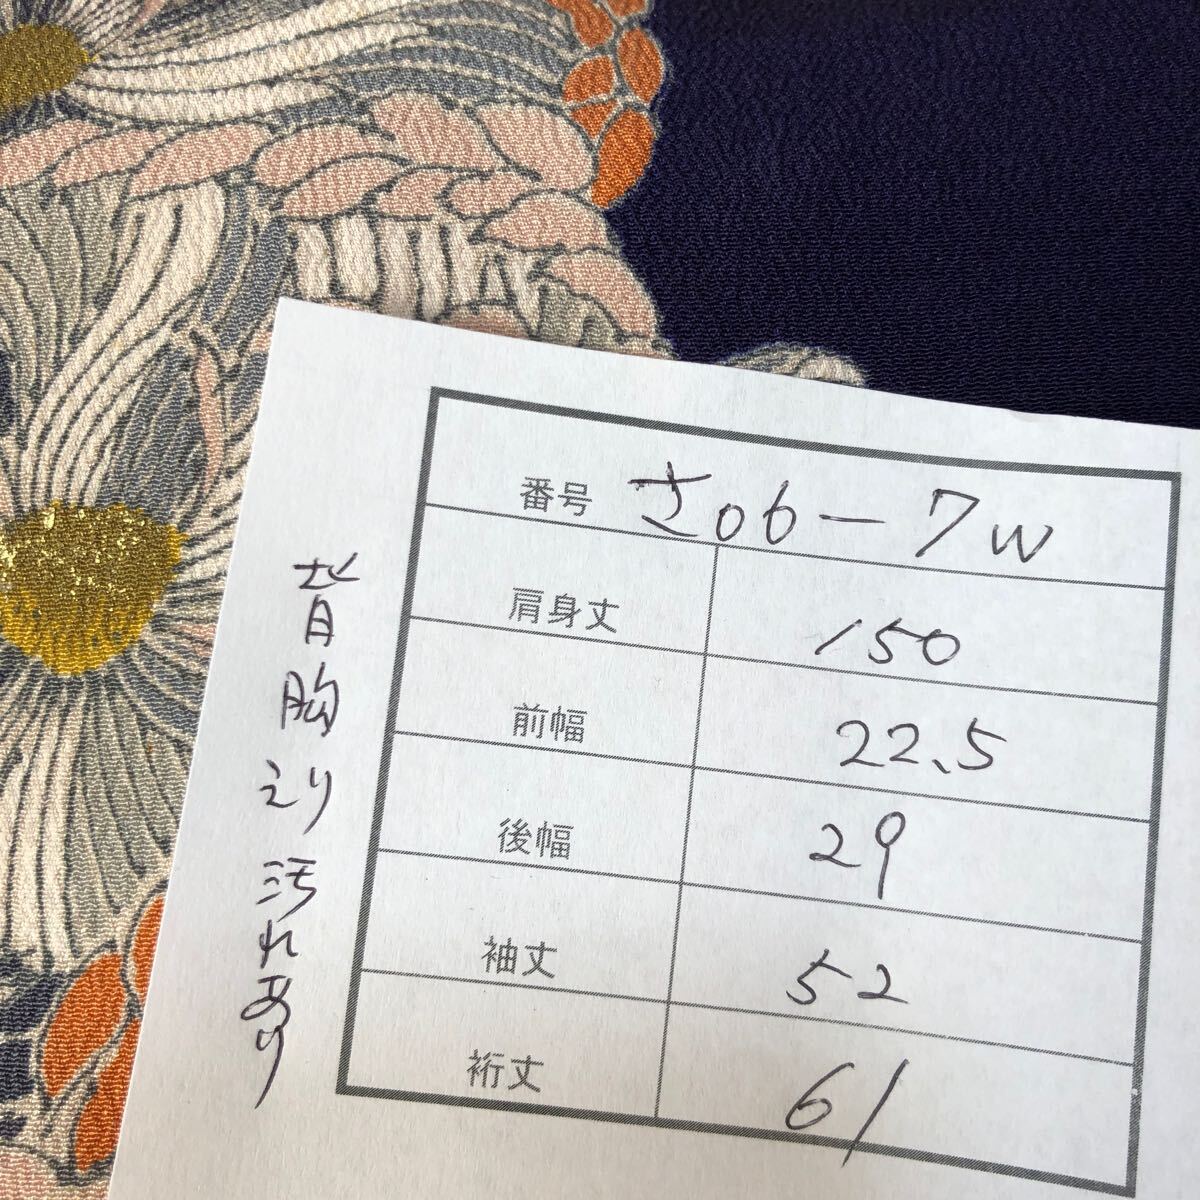 番号 さ06-7w
肩身丈 150
前幅 22.5
後幅 29
袖丈 52
裄丈 61
背胸えり汚れあり